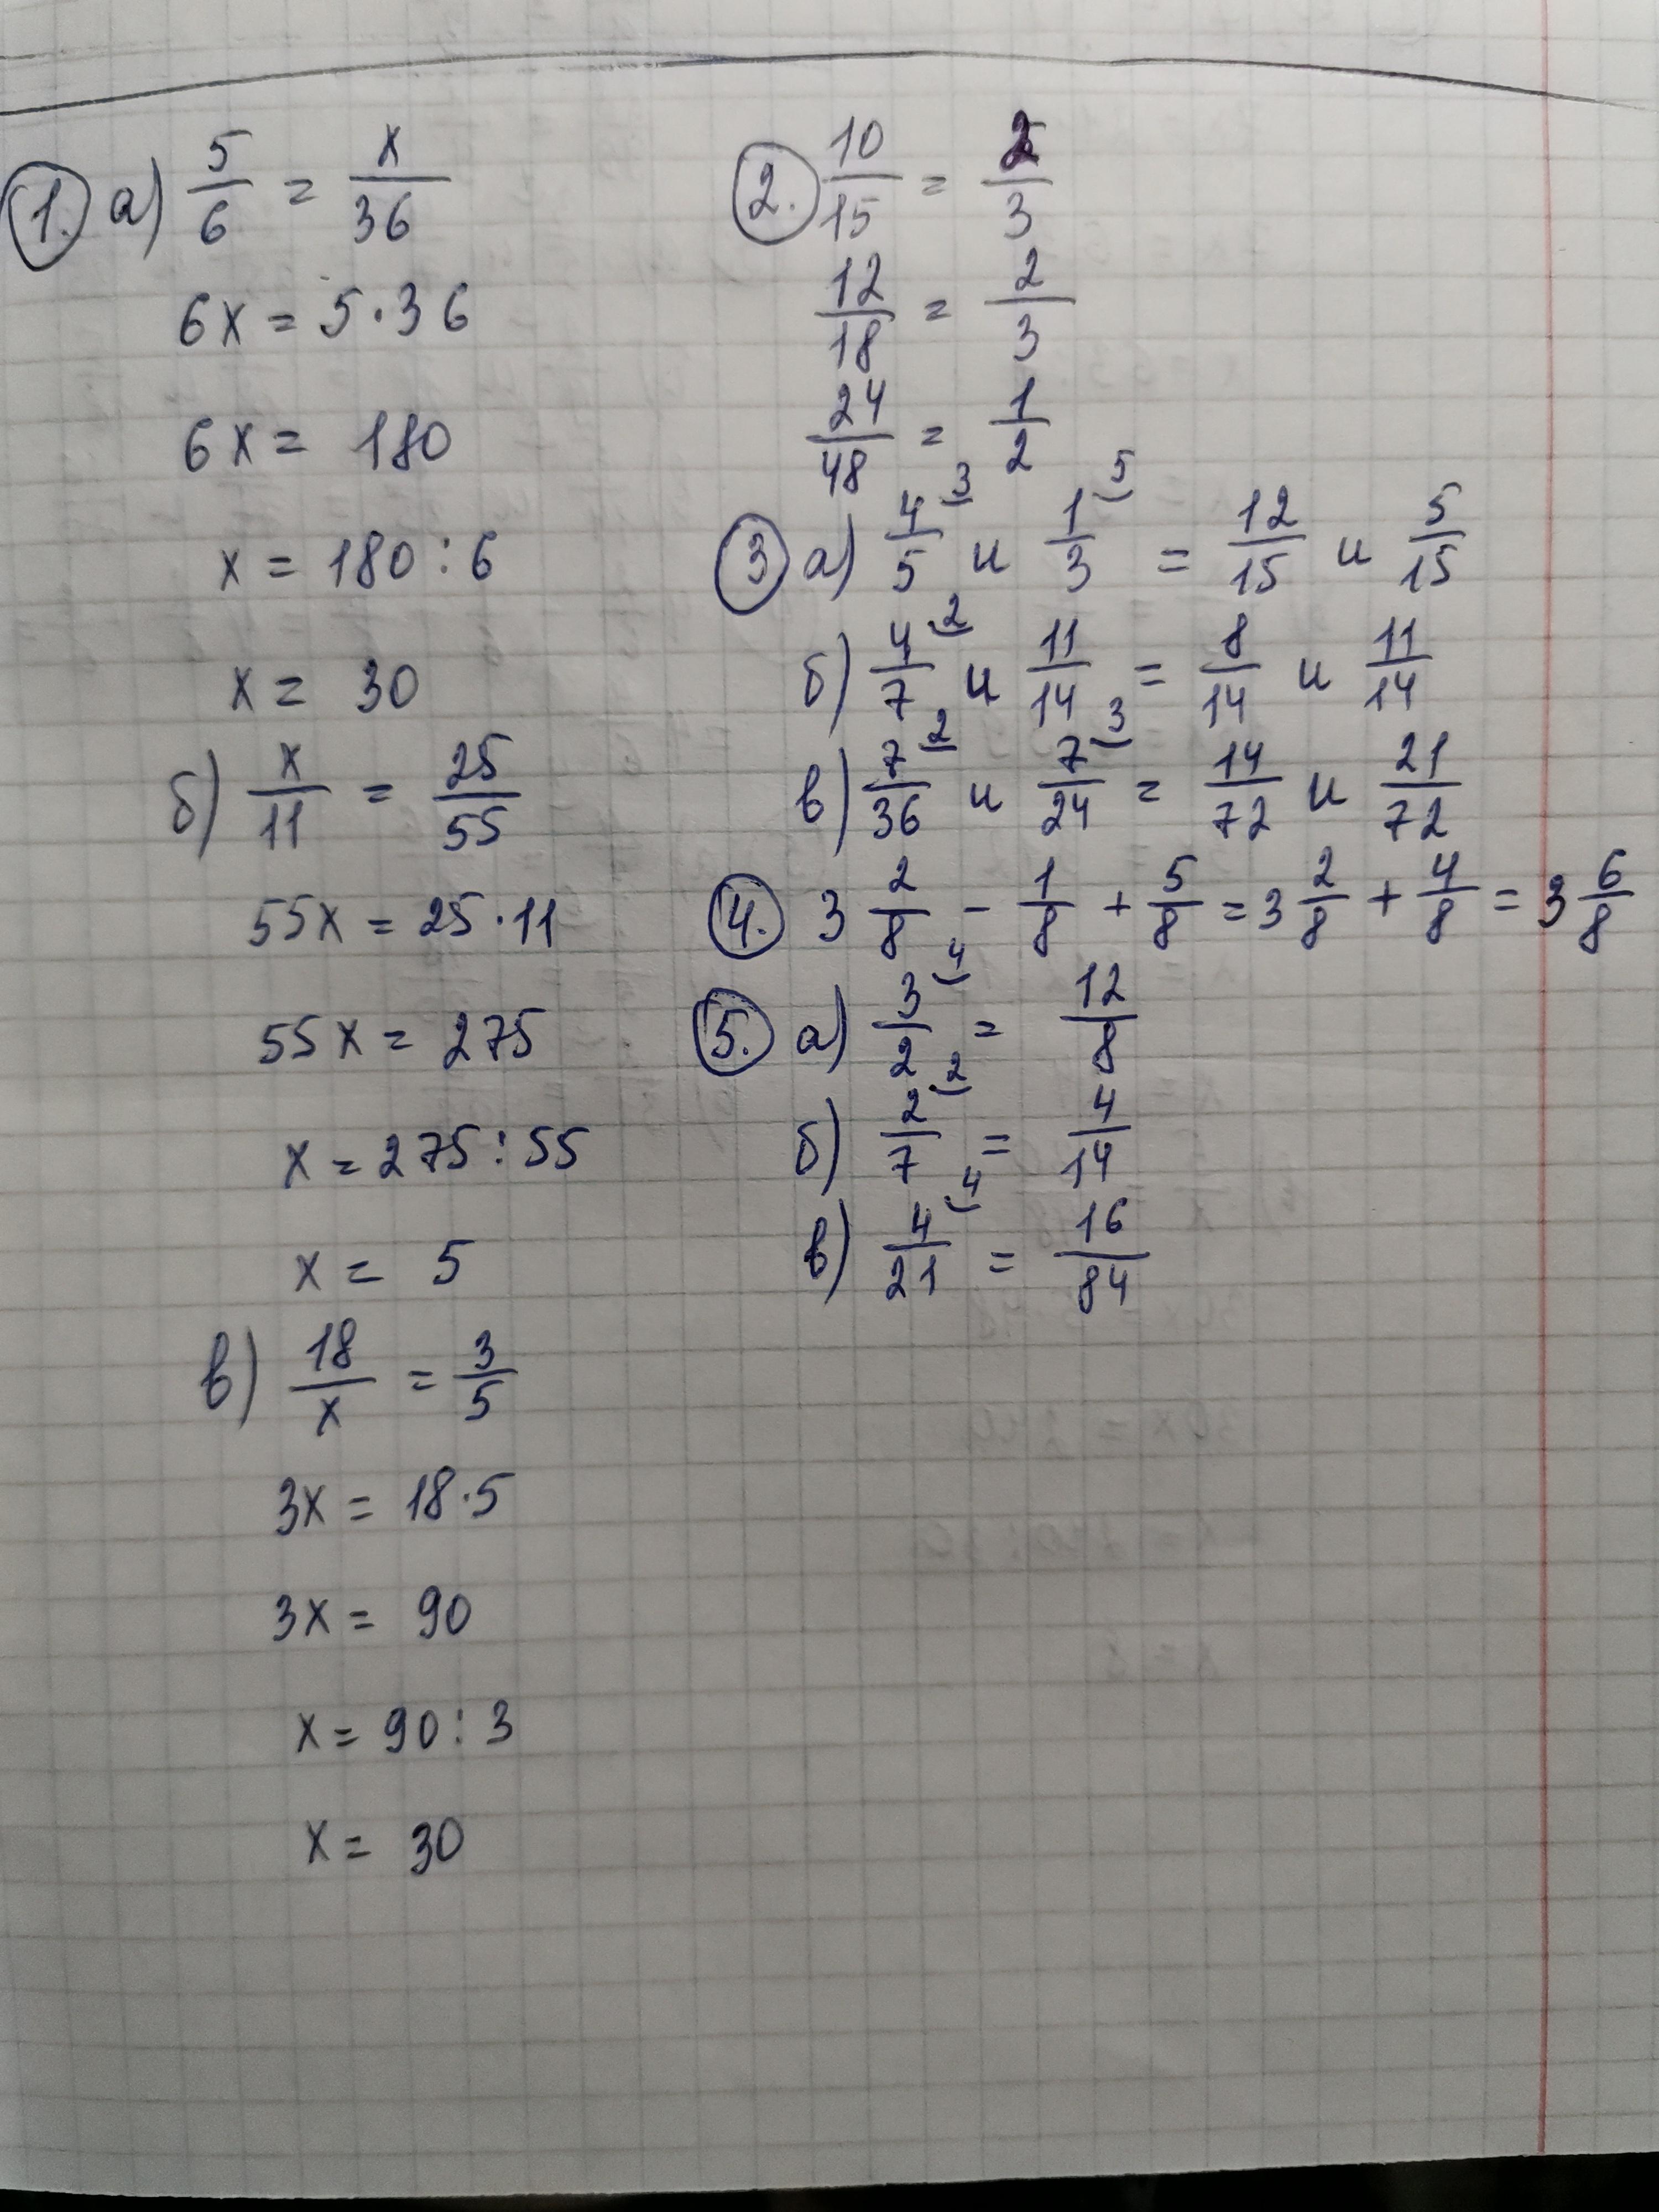 1. а) 5/6 = x/36
6x = 5·36
6x = 180
x = 180:6
x = 30
б) x/11 = 25/55
55x = 25·11
55x = 275
x = 275:55
x = 5
в) 18/x = 3/5
3x = 18·5
3x = 90
x = 90:3
x = 30
2. 10/15 = 2/3
12/18 = 2/3
24/48 = 1/2
3 а) 4/5 ⁽3 и 1/3 ⁽5 = 12/15 и 5/15
б) 4/7 ⁽2 и 11/14 = 8/14 и 11/14
в) 7/36 ⁽2 и 7/24 ⁽3 = 14/72 и 21/72
4. 3 2/8 - 1/8 + 5/8 = 3 2/8 + 4/8 = 3 6/8
5. а) 3/2 ⁽4 = 12/8
б) 2/7 ⁽2 = 4/14
в) 4/21 ⁽4 = 16/84